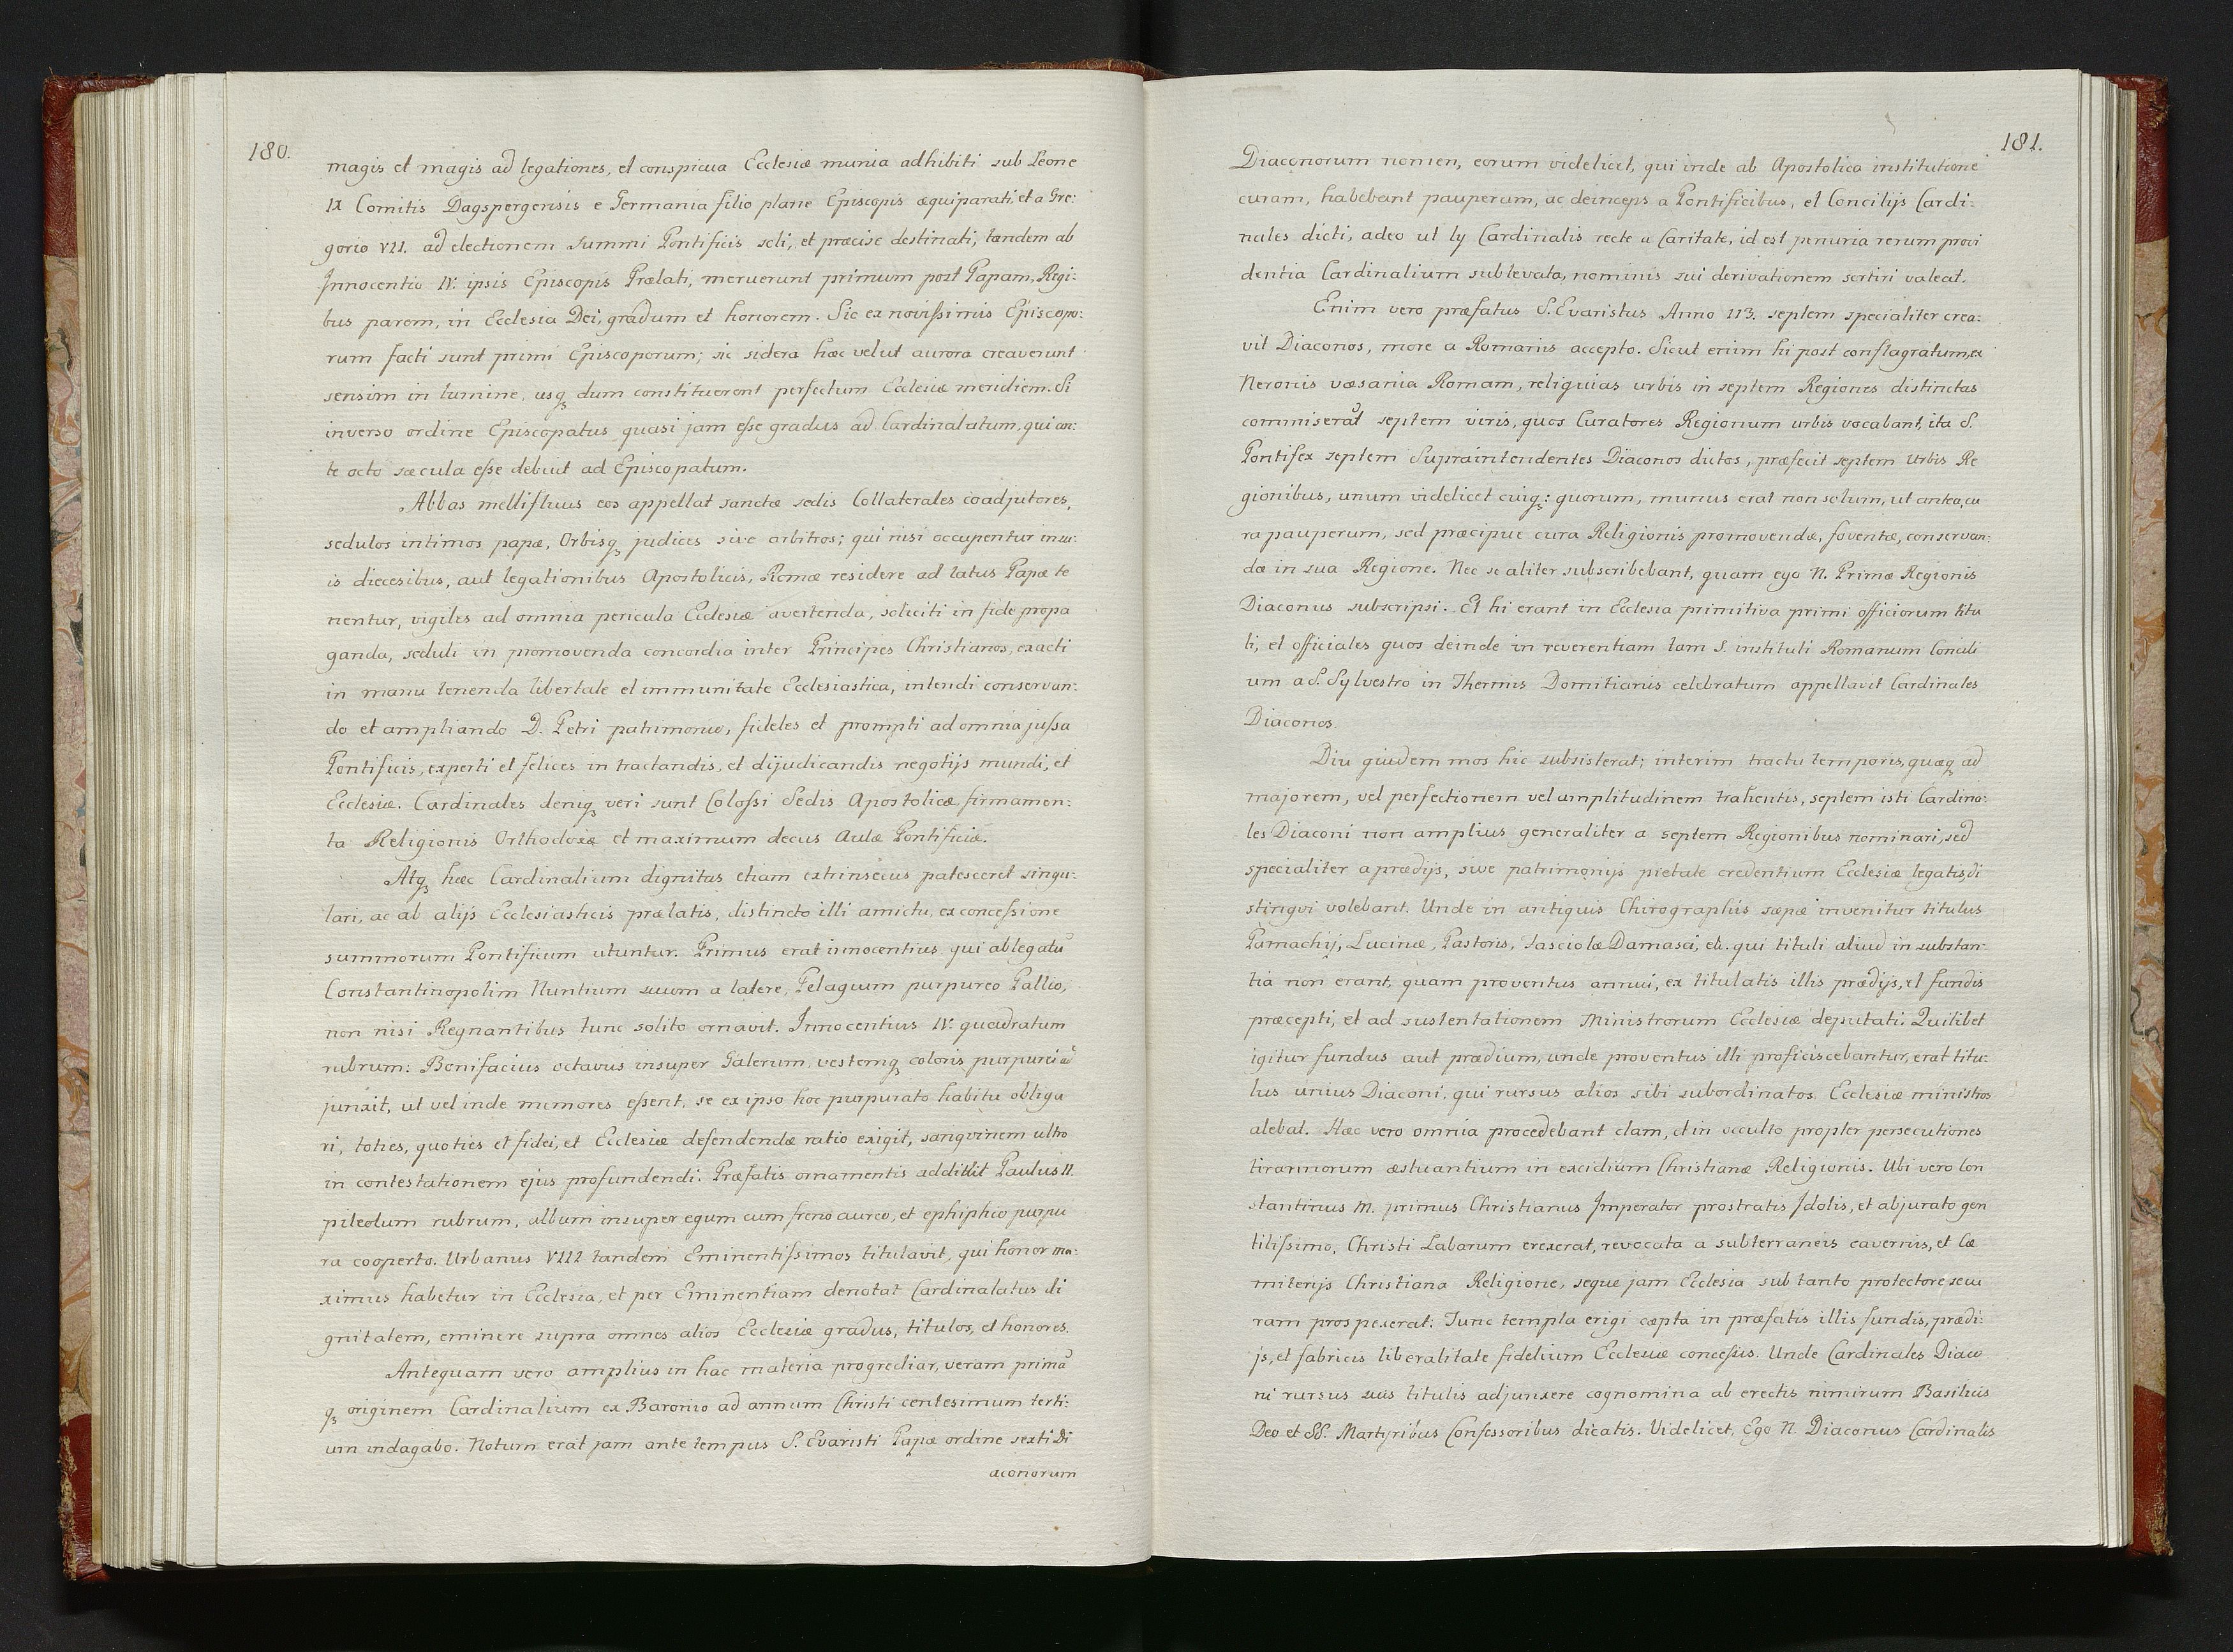 180.
magis et magis ad legationes, et conspicua Ecclesiæ munia adhibiti sub Leone
IX Comitis Dagspergensis e Germania filio plane Episcopis æquiparati, et a Gre:
gorio VII. ad electionem summi Pontificis soli, et præcise destinati, tandem ab
Innocentio IV. ipsis Episcopis Prælati, meruerunt primum post Papam, Regi:
bus parem, in Ecclesia Dei, gradum et honorem. Sic ex novissimis Episcopo:
rum facti sunt primi Episcoporum; sic sidera hæc velut aurora creaverunt
sensim in lumine, usqꝫ dum constituerent perfectum Ecclesiæ meridiem. Si
inverso ordine Episcopatus quasi jam esse gradus ad Cardinalatum, qui an:
te octo sæcula esse debuit ad Episcopatum.
Abbas mellifluus eos appellat sanctæ sedis Collaterales coadjutores,
sedulos intimos papæ, Orbisqꝫ judices sive arbitros; qui nisi occupentur in su:
is diecesibus, aut legationibus Apostolicis, Romæ residere ad latus Papæ te
nentur, vigiles ad omnia pericula Ecclesiæ avertenda, soliciti in fide propa
ganda, seduli in promovenda concordia inter Principes Christianos, exacti
in manu tenenda libertate et immunitate Ecclesiastica, intendi conservan:
do et ampliando D. Petri patrimonio, fideles et prompti ad omnia jussa
Pontificis, experti et felices in tractandis, et dijudicandis negotijs mundi, et
Ecclesiæ. Cardinales deniqꝫ veri sunt Colossi Sedis Apostolicæ firmamen:
ta Religionis Orthodoxæ et maximum decus Aulæ Pontificiæ.
Atqꝫ hæc Cardinalium dignitas etiam extrinsecus patesceret singu:
lari, ac ab alijs Ecclesiasticis prælatis, distincto illi amictu, ex concessione
summorum Pontificum utuntur. Primus erat innocentius qui ablegatū
Constantinopolim Nuntium suum a latere, Pelagium purpureo Pallio,
non nisi Regnantibus tunc solito ornavit. Innocentius IV. quadratum
rubrum: Bonifacius octavus insuper Galerum, vestemqꝫ coloris purpurei ad
junxit, ut vel inde memores essent, se ex ipso hoc purpurato habitu obliga
ri, toties, quoties et fidei, et Ecclesiæ defendendæ ratio exigit, sangvinem ultro
in contestationem ejus profundendi. Præfatis ornamentis addidit Paulus II.
pileolum rubrum, album insuper equum cum freno aureo, et ephiphio purpu
ra cooperto. Urbanus VIII tandem Eminentissimos titulavit, qui honor ma:
ximus habetur in Ecclesia, et per Eminentiam denotat Cardinalatus di
gnitatem, eminere supra omnes alios Ecclesiæ gradus, titulos, et honores.
Antequam vero amplius in hac materia progrediar, veram primā
qꝫ originem Cardinalium ex Baronio ad annum Christi centesimum terti:
um indagabo. Notum erat jam ante tempus S. Evaristi Papæ ordine sexti Di
aconorum
181.
Diaconorum nomen, eorum videlicet, qui inde ab Apostolica institutione
curam, habebant pauperum, ac deinceps a Pontificibus, et Concilijs Cardi:
nales dicti, adeo ut ly Cardinalis recte a Caritate, id est penuria rerum provi
dentia Cardinalium sublevata, nominis sui derivationem sortiri valeat.
Enim vero præfatus S. Evaristus Anno 113. septem specialiter crea:
vit Diaconos, more a Romanis accepto. Sicut enim hi post conflagratum, ex
Neronis væsania Romam, reliquias urbis in septem Regiones distinctas
commiserāt septem viris, quos Curatores Regionum urbis vocabant, ita S.
Pontifex septem Supraintendentes Diaconos dictos, præfecit septem Urbis Re
gionibus, unum videlicet cuiqꝫ: quorum, munus erat non solum, ut antea, cu
ra pauperum, sed præcipue cura Religionis promovendæ, foventæ, conservan:
dæ in sua Regione. Nec se aliter subscribebant, quam ego N. Primæ Regionis
Diaconus subscripsi. Et hi erant in Ecclesia primitiva primi officiorum titu
li, et officiales quos deinde in reverentiam tam S. instituti Romanum Concili
um a S. Sylvestro in Thermis Domitianis celebratum appellavit Cardinales
Diaconos.
Diu quidem mos hic subsisterat; interim tractu temporis, quæqꝫ ad
majorem, vel perfectionem vel amplitudinem trahentis, septem isti Cardina:
les Diaconi non amplius generaliter a septem Regionibus nominari, sed
specialiter a prædijs, sive patrimonijs pietate credentium Ecclesiæ legatis, di
stingvi volebant. Unde in antiquis Chirographis sæpæ invenitur titulus
Pamachij, Lucinæ, Pastoris, Fasciolæ Damasci, etc. qui tituli aliud in substan:
tia non erant, quam proventus annui, ex titulatis illis prædijs, et fundis
præcepti, et ad sustentationem Ministrorum Ecclesiæ deputati. Quilibet
igitur fundus aut prædium, unde proventus illi proficiscebantur, erat titu:
lus unius Diaconi, qui rursus alios sibi subordinatos Ecclesiæ ministros
alebat. Hæc vero omnia procedebant clam, et in occulto propter persecutiones
tirannorum æstuantium in excidium Christianæ Religionis. Ubi vero Con
stantinus M. primus Christianus Imperator prostratis Idolis, et abjurato gen
tilissimo, Christi Labarum erexerat, revocata a subterraneis cavernis, et Cæ
miterijs Christiana Religione, seque jam Ecclesia sub tanto protectore secu
ram prospexerat. Tunc templa erigi cæpta in præfatis illis fundis, prædi:
js, et fabricis liberalitate fidelium Ecclesiæ concessis. Unde Cardinales Diaco
ni rursus suis titulis adjunxere cognomina ab erectis nimirum Basilicis
Deo et SS. Martyribus Confessoribus dicatis. Videlicet, Ego N. Diaconus Cardinalis